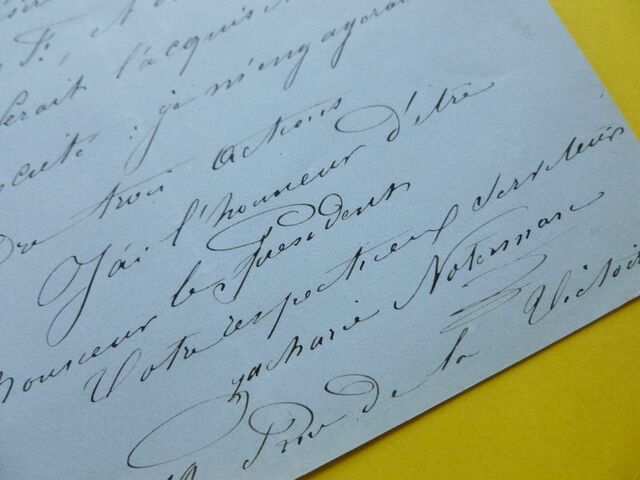 F, 
serait l'acquis
: je m'engagerai
de trois actions
J'ai l'honneur d'être
Monsieur le Président
Votre respectueux Serviteur
Zacharie Noterman
Rue de la Victoire